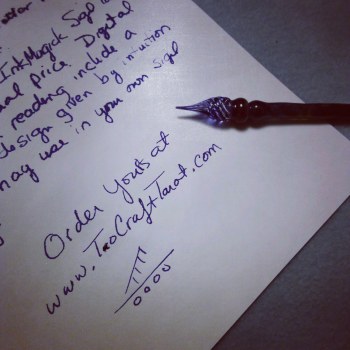 InkMagick Sigil
price Digital
reading include a
design given by intuition
may use in your own sigil
Order Yours at
www.TaoCraftTarot.com